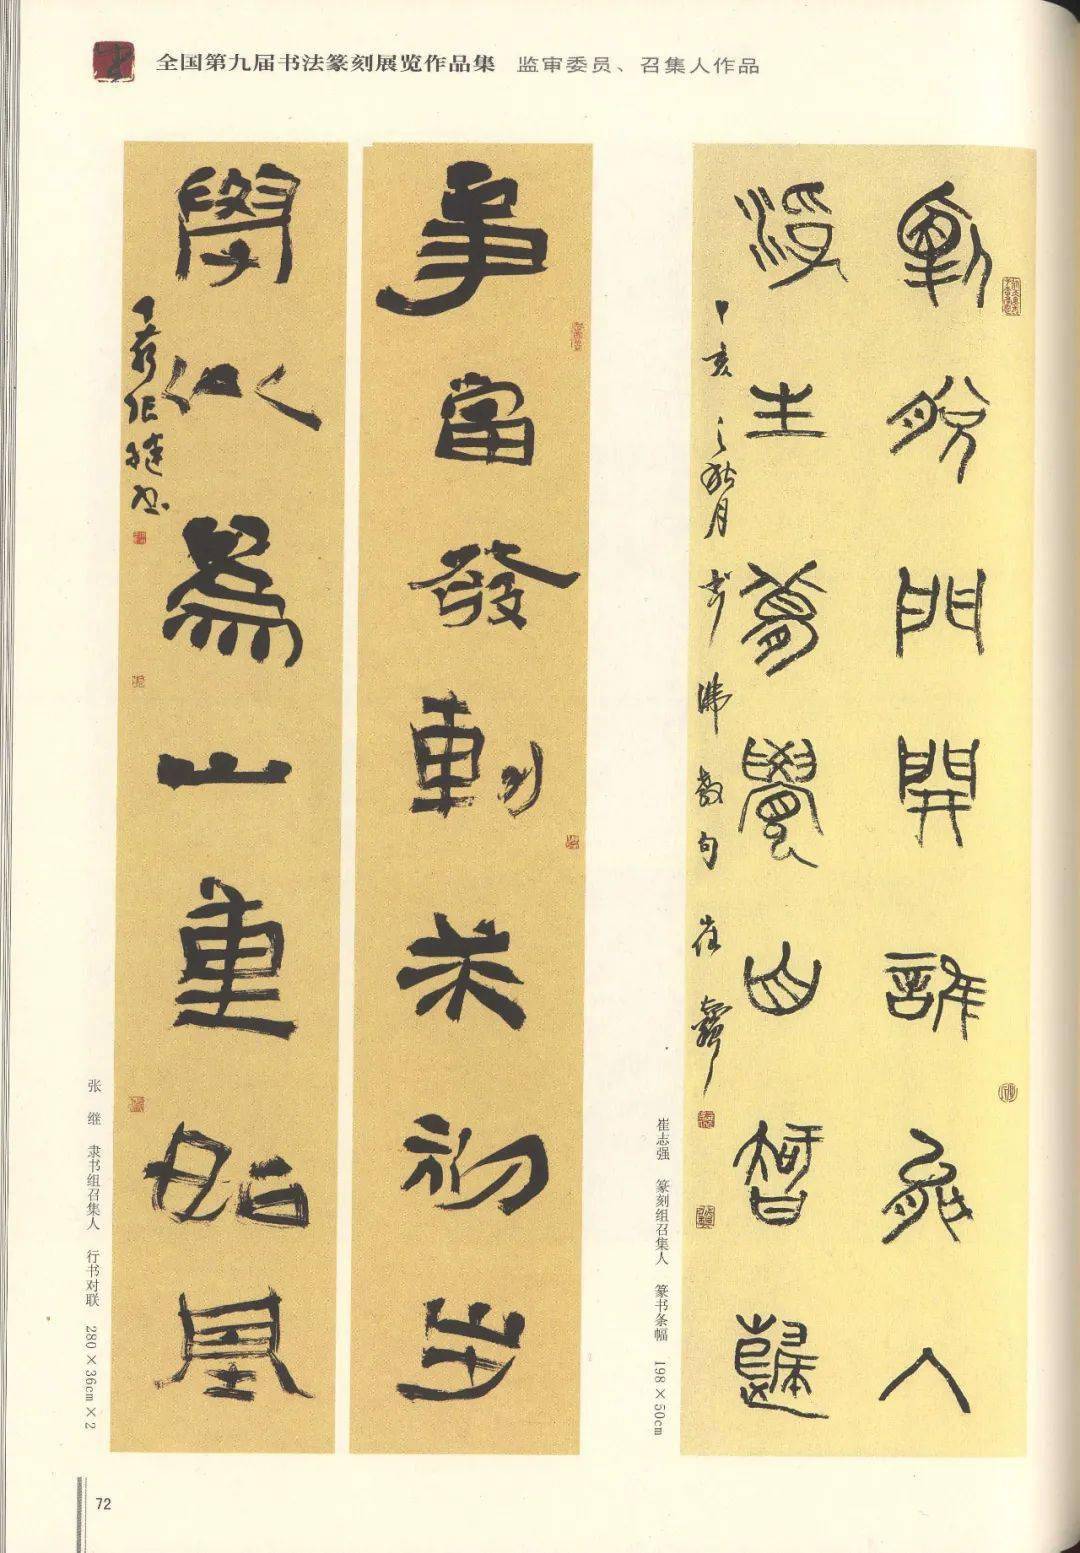 全国第九届书法篆刻展览作品集 监审委员、召集人作品
脱門開誰能入
浮生夢覺自智歸
丁亥之秋月书佛教句 崔
崔志强 篆刻组召集人 篆书条幅 198×50cm
事當發軔初步
學以為山重始基
丁亥张继书
张 继 隶书组召集人 行书对联 280×36cm×2
72